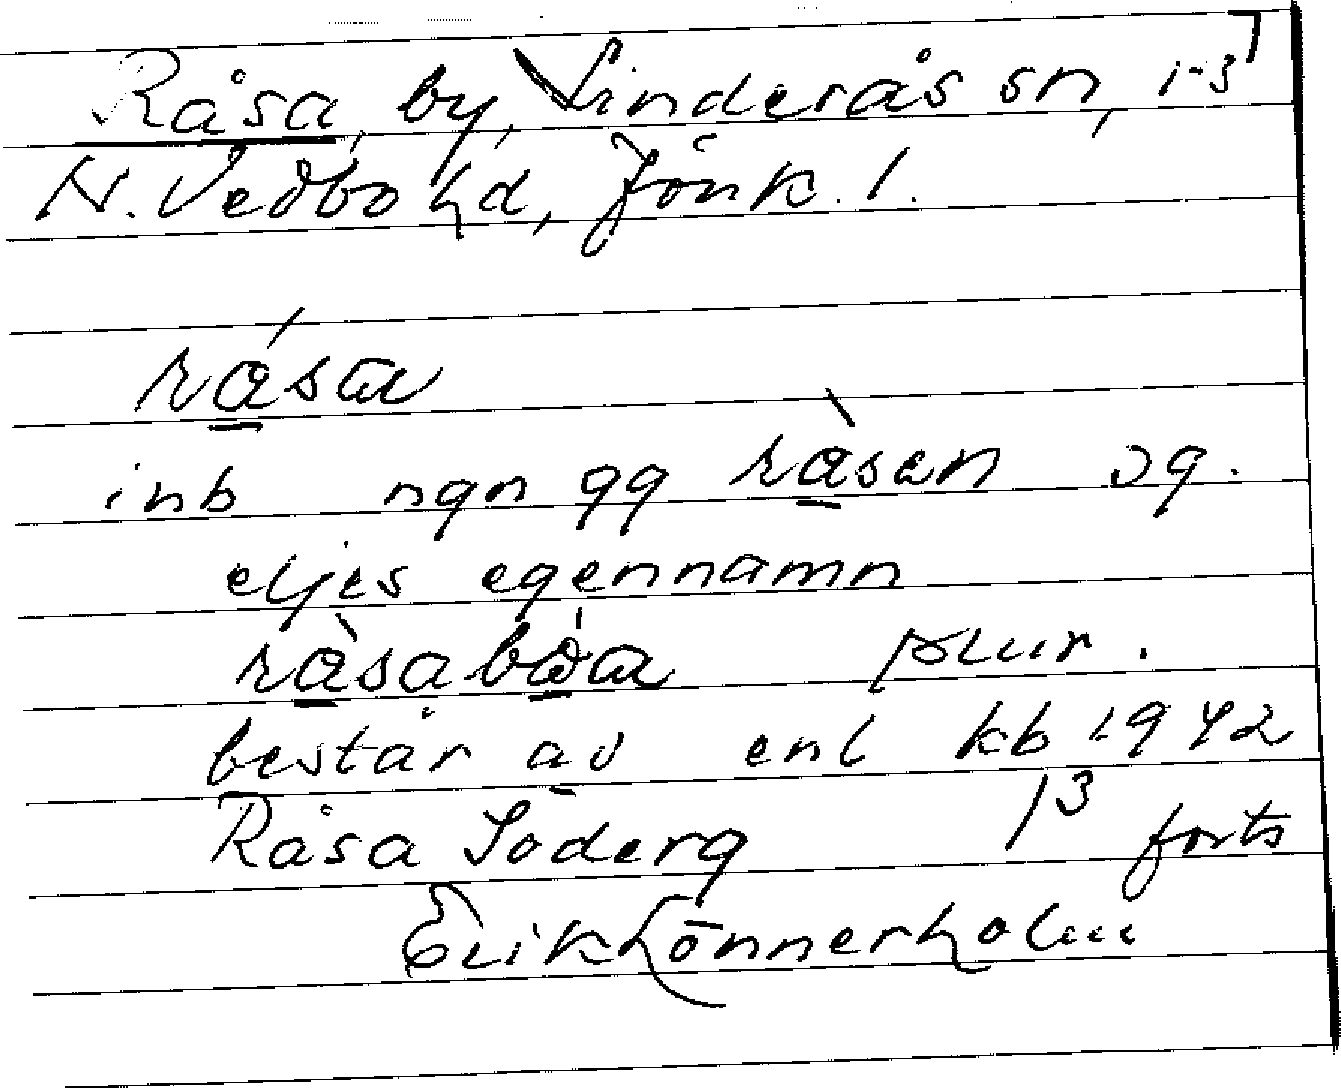 Råsa, by, Linderås sn, 1-3
N. Vedbo hd, Jönk. l.
råsa
inb ngn gg råsan sg.
eljes egennamn
råsaböa plur.
består av enl kb 1942
Råsa Söderg 1 3 forts
Erik Lönnerholm